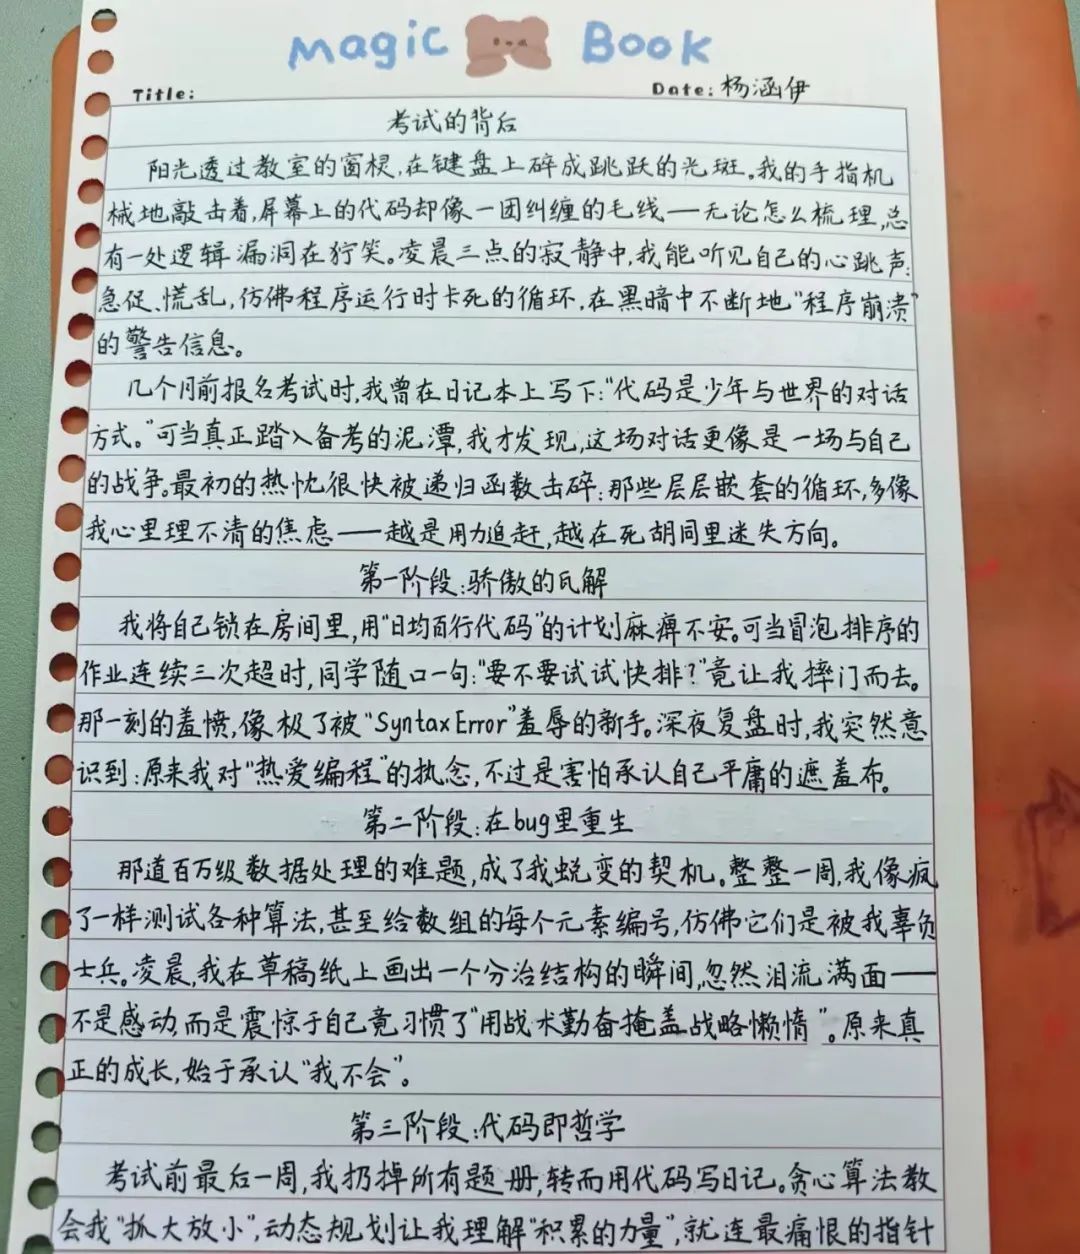 Magic Book
Title:
Date: 杨涵伊
考试的背后
阳光透过教室的窗棂,在键盘上碎成跳跃的光斑。我的手指机
械地敲击着,屏幕上的代码却像一团纠缠的毛线——无论怎么梳理,总
有一处逻辑漏洞在狞笑。凌晨三点的寂静中,我能听见自己的心跳声:
急促、慌乱,仿佛程序运行时卡死的循环,在黑暗中不断地"程序崩溃"
的警告信息。
几个月前报名考试时,我曾在日记本上写下:"代码是少年与世界的对话
方式。"可当真正踏入备考的泥潭,我才发现,这场对话更像是一场与自己
的战争。最初的热忱很快被递归函数击碎:那些层层嵌套的循环,多像
我心里理不清的焦虑——越是用力追赶,越在死胡同里迷失方向。
第一阶段:骄傲的瓦解
我将自己锁在房间里,用"日均百行代码"的计划麻痹不安。可当冒泡排序的
作业连续三次超时,同学随口一句:"要不要试试快排?"竟让我摔门而去。
那一刻的羞愤,像极了被"Syntax Error"羞辱的新手。深夜复盘时,我突然意
识到:原来我对"热爱编程"的执念,不过是害怕承认自己平庸的遮羞布。
第二阶段:在bug里重生
那道百万级数据处理的难题,成了我蜕变的契机。整整一周,我像疯
了一样测试各种算法,甚至给数组的每个元素编号,仿佛它们是被我辜负
士兵。凌晨,我在草稿纸上画出一个分治结构的瞬间,忽然泪流满面——
不是感动,而是震惊于自己竟习惯了"用战术勤奋掩盖战略懒惰"。原来真
正的成长,始于承认"我不会"。
第三阶段:代码即哲学
考试前最后一周,我扔掉所有题册,转而用代码写日记。贪心算法教
会我"抓大放小",动态规划让我理解"积累的力量",就连最痛恨的指针